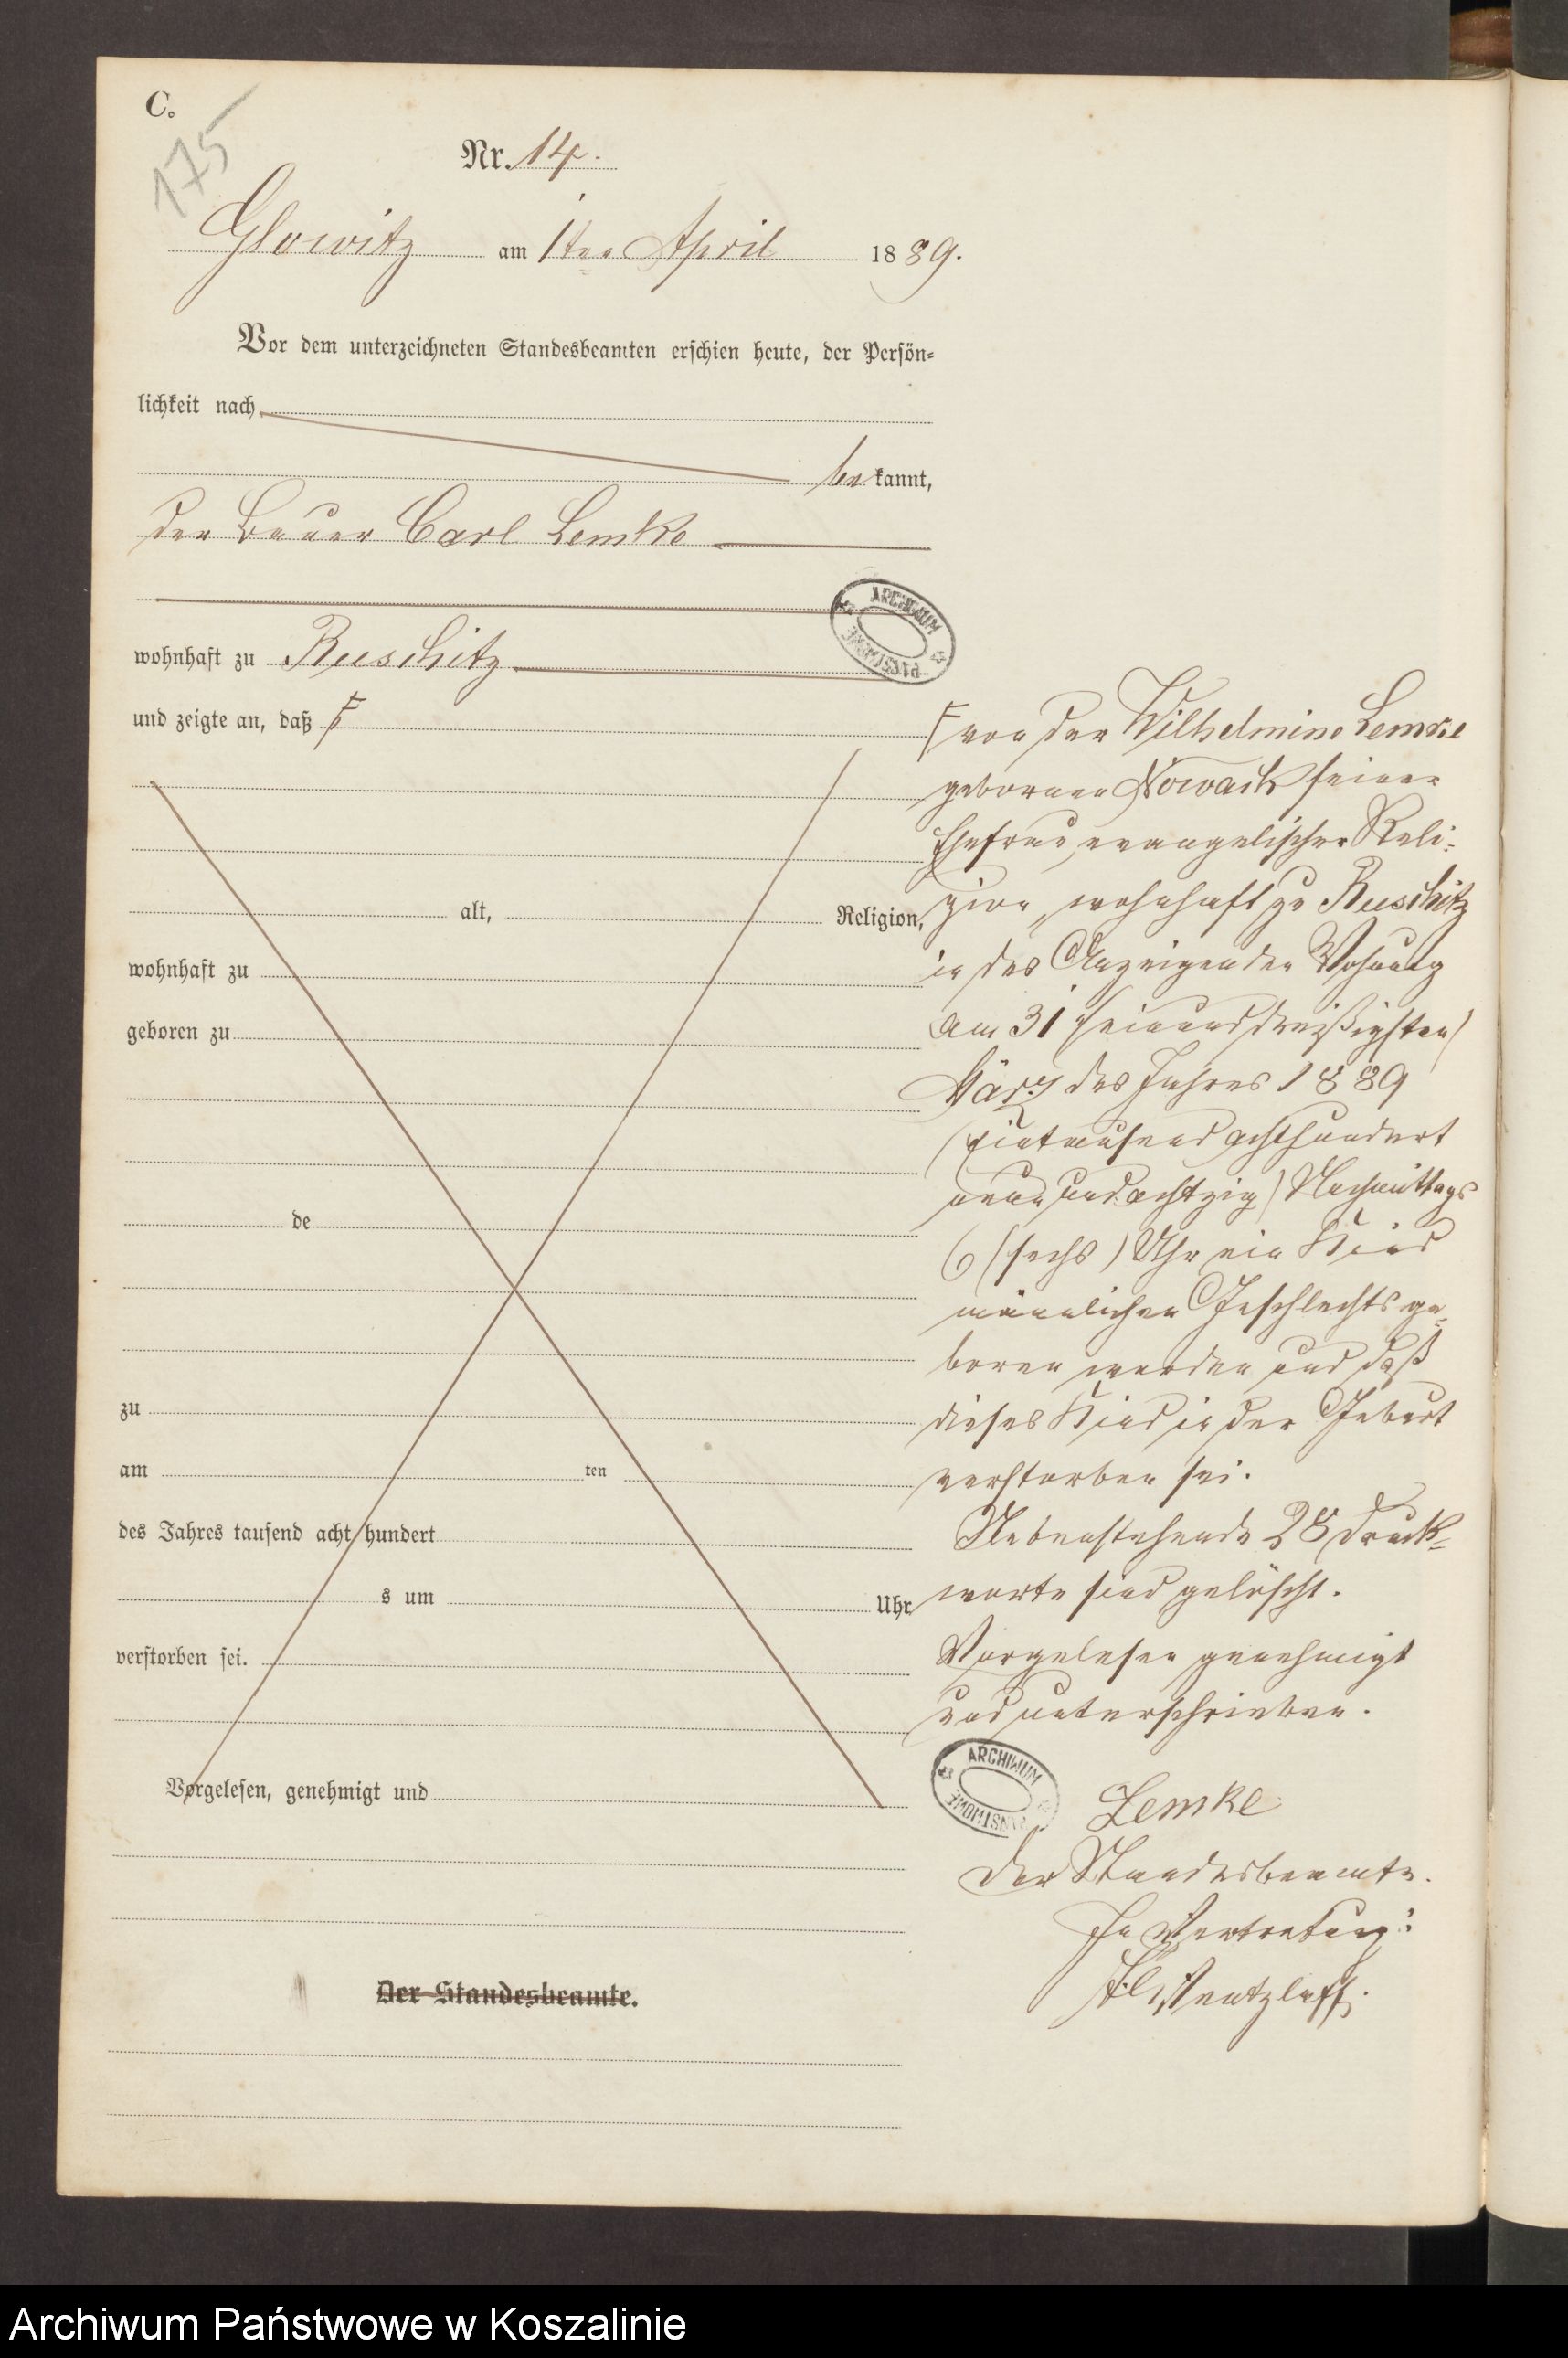 C.
175
Nr. 14.
Glowitz am 1ten April 1889.
Vor dem unterzeichneten Standesbeamten erschien heute, der Persön=
lichkeit nach
bekannt,
der Bauer Carl Lemke
wohnhaft zu Ruschitz
und zeigte an, daß
alt, Religion,
wohnhaft zu
geboren zu
de
zu
am ten
des Jahres tausend acht hundert
s um Uhr
verstorben sei.
Vorgelesen, genehmigt und
Der Standesbeamte.
von der Wilhelmine Lemke
gebornen Nowack seiner
Ehefrau, evangelischer Reli-
gion, wohnhaft zu Ruschitz
in des Anzeigenden Wohnung
am 31 (einunddreißigsten)
März des Jahres 1889
(Eintausend achthundert
neun und achtzig) Nachmittags
6 (sechs) Uhr ein Kind
männlichen Geschlechts ge-
boren worden und daß
dieses Kind in der Geburt
verstorben sei.
Nebenstehende 28 Druck-
worte sind gelöscht.
Vorgelesen genehmigt
und unterschrieben.
Lemke
Der Standesbeamte.
In Vertretung:
Wentzlaff.
ARCHIWUM PAŃSTWOWE
ARCHIWUM PAŃSTWOWE
Archiwum Państwowe w Koszalinie